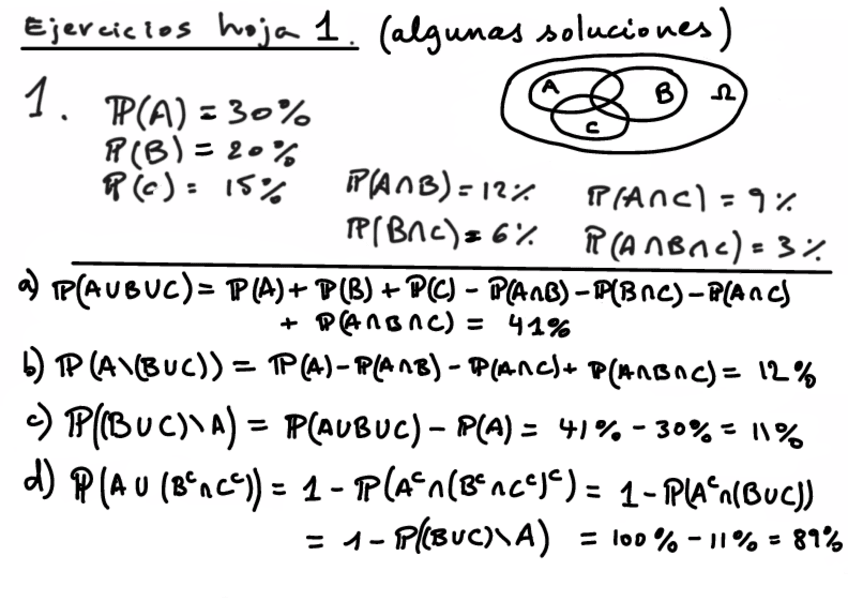 Ejercicios hoja 1. (algunas soluciones)
A B C Ω
1. ℙ(A) = 30%
ℙ(B) = 20%
ℙ(C) = 15% ℙ(A∩B) = 12% ℙ(A∩C) = 9%
ℙ(B∩C) = 6% ℙ(A∩B∩C) = 3%
a) ℙ(A∪B∪C) = ℙ(A) + ℙ(B) + ℙ(C) - ℙ(A∩B) - ℙ(B∩C) - ℙ(A∩C)
+ ℙ(A∩B∩C) = 41%
b) ℙ(A\(B∪C)) = ℙ(A) - ℙ(A∩B) - ℙ(A∩C) + ℙ(A∩B∩C) = 12%
c) ℙ((B∪C)\A) = ℙ(A∪B∪C) - ℙ(A) = 41% - 30% = 11%
d) ℙ(A∪(Bᶜ∩Cᶜ)) = 1 - ℙ(Aᶜ∩(Bᶜ∩Cᶜ)ᶜ) = 1 - ℙ(Aᶜ∩(B∪C))
= 1 - ℙ((B∪C)\A) = 100% - 11% = 89%